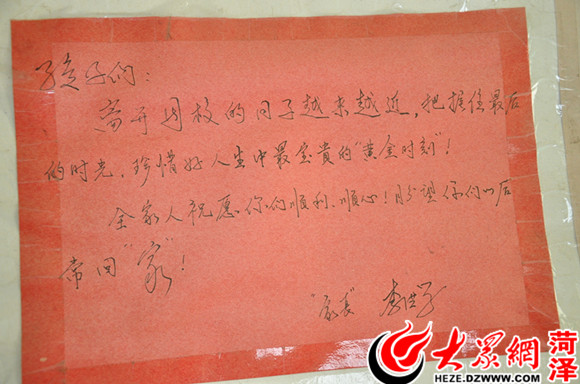 孩子们:
离开母校的日子越来越近,把握住最后
的时光、珍惜好人生中最宝贵的“黄金时刻”!
全家人祝愿你们顺利、顺心!盼望你们以后
常回“家”!
“家长” 李
大众網 菏泽
HEZE.DZWWW.COM